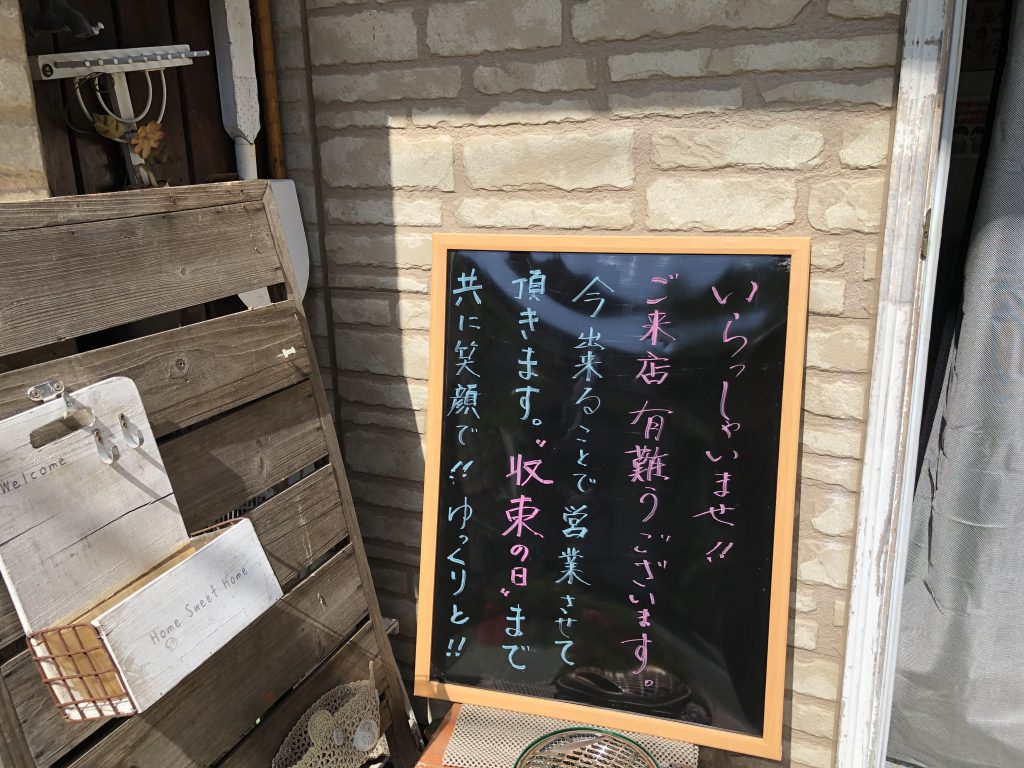 いらっしゃいませ!!
ご来店有難うございます。
今出来ることで営業させて
頂きます。"収束の日"まで
共に笑顔で!!ゆっくりと!!
Welcome
Home Sweet Home